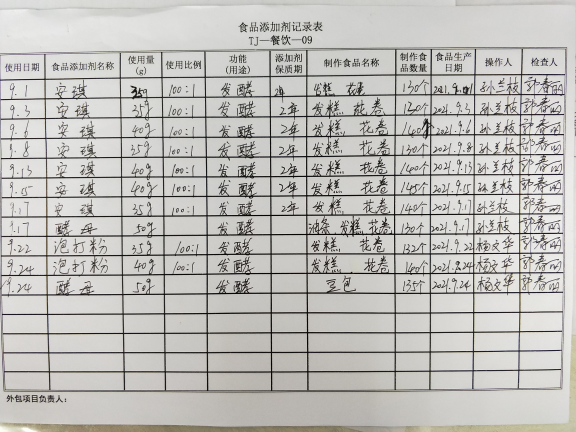 食品添加剂记录表
TJ—餐饮—09
使用日期 食品添加剂名称 使用量(g) 使用比例 功能(用途) 添加剂保质期 制作食品名称 制作食品数量 食品生产日期 操作人 检查人
9.1 安琪 35g 100:1 发酵 2年 发糕 花卷 130个 2021.9.1 孙兰枝 郭春丽
9.3 安琪 35g 100:1 发酵 2年 发糕 花卷 130个 2021.9.3 孙兰枝 郭春丽
9.6 安琪 40g 100:1 发酵 2年 发糕 花卷 140个 2021.9.6 孙兰枝 郭春丽
9.8 安琪 35g 100:1 发酵 2年 发糕 花卷 130个 2021.9.8 孙兰枝 郭春丽
9.13 安琪 40g 100:1 发酵 2年 发糕 花卷 140个 2021.9.13 孙兰枝 郭春丽
9.15 安琪 40g 100:1 发酵 2年 发糕 花卷 145个 2021.9.15 孙兰枝 郭春丽
9.17 安琪 35g 100:1 发酵 2年 发糕 花卷 140个 2021.9.17 孙兰枝 郭春丽
9.17 酵母 50g 发酵 油条 发糕 花卷 130个 2021.9.17 孙兰枝 郭春丽
9.22 泡打粉 35g 100:1 发酵 发糕 花卷 132个 2021.9.22 杨文华 郭春丽
9.24 泡打粉 40g 100:1 发酵 发糕 花卷 140个 2021.9.24 杨文华 郭春丽
9.24 酵母 50g 发酵 豆包 135个 2021.9.24 杨文华 郭春丽
外包项目负责人：